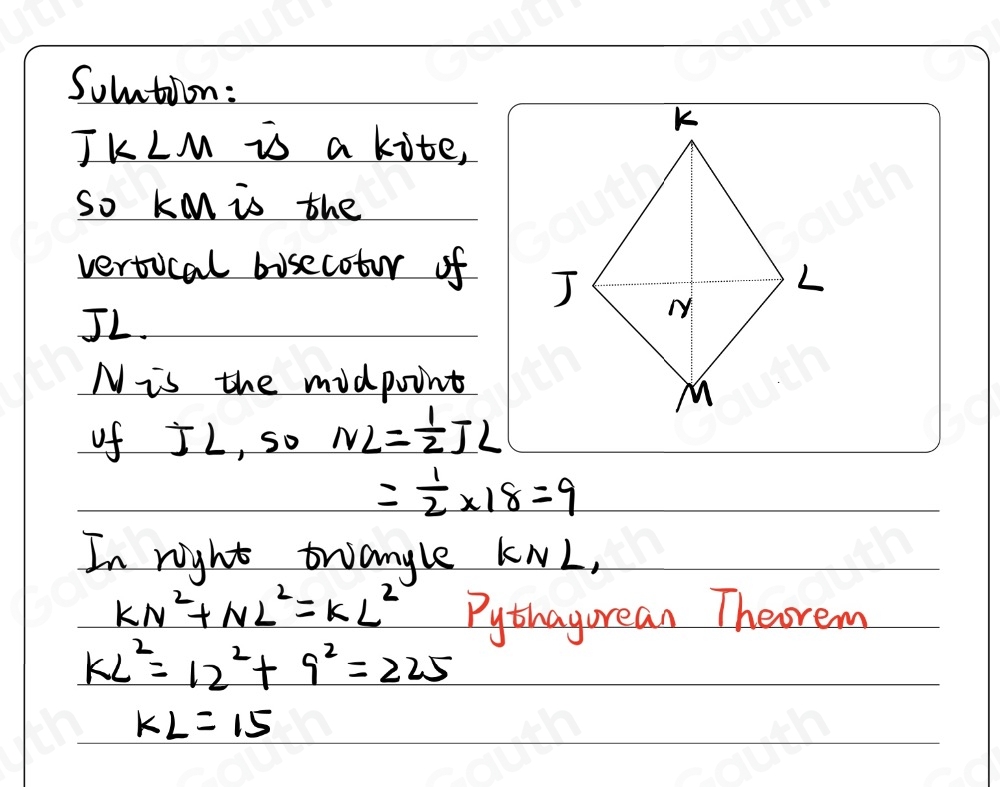 Solution:
JKLM is a kite,
so KM is the
vertical bisecotor of
JL.
N is the midpoint
of JL, so NL = 1/2 JL
= 1/2 × 18 = 9
In right triangle KNL,
KN² + NL² = KL² Pythagorean Theorem
KL² = 12² + 9² = 225
KL = 15
K
J
L
N
M
Gauth